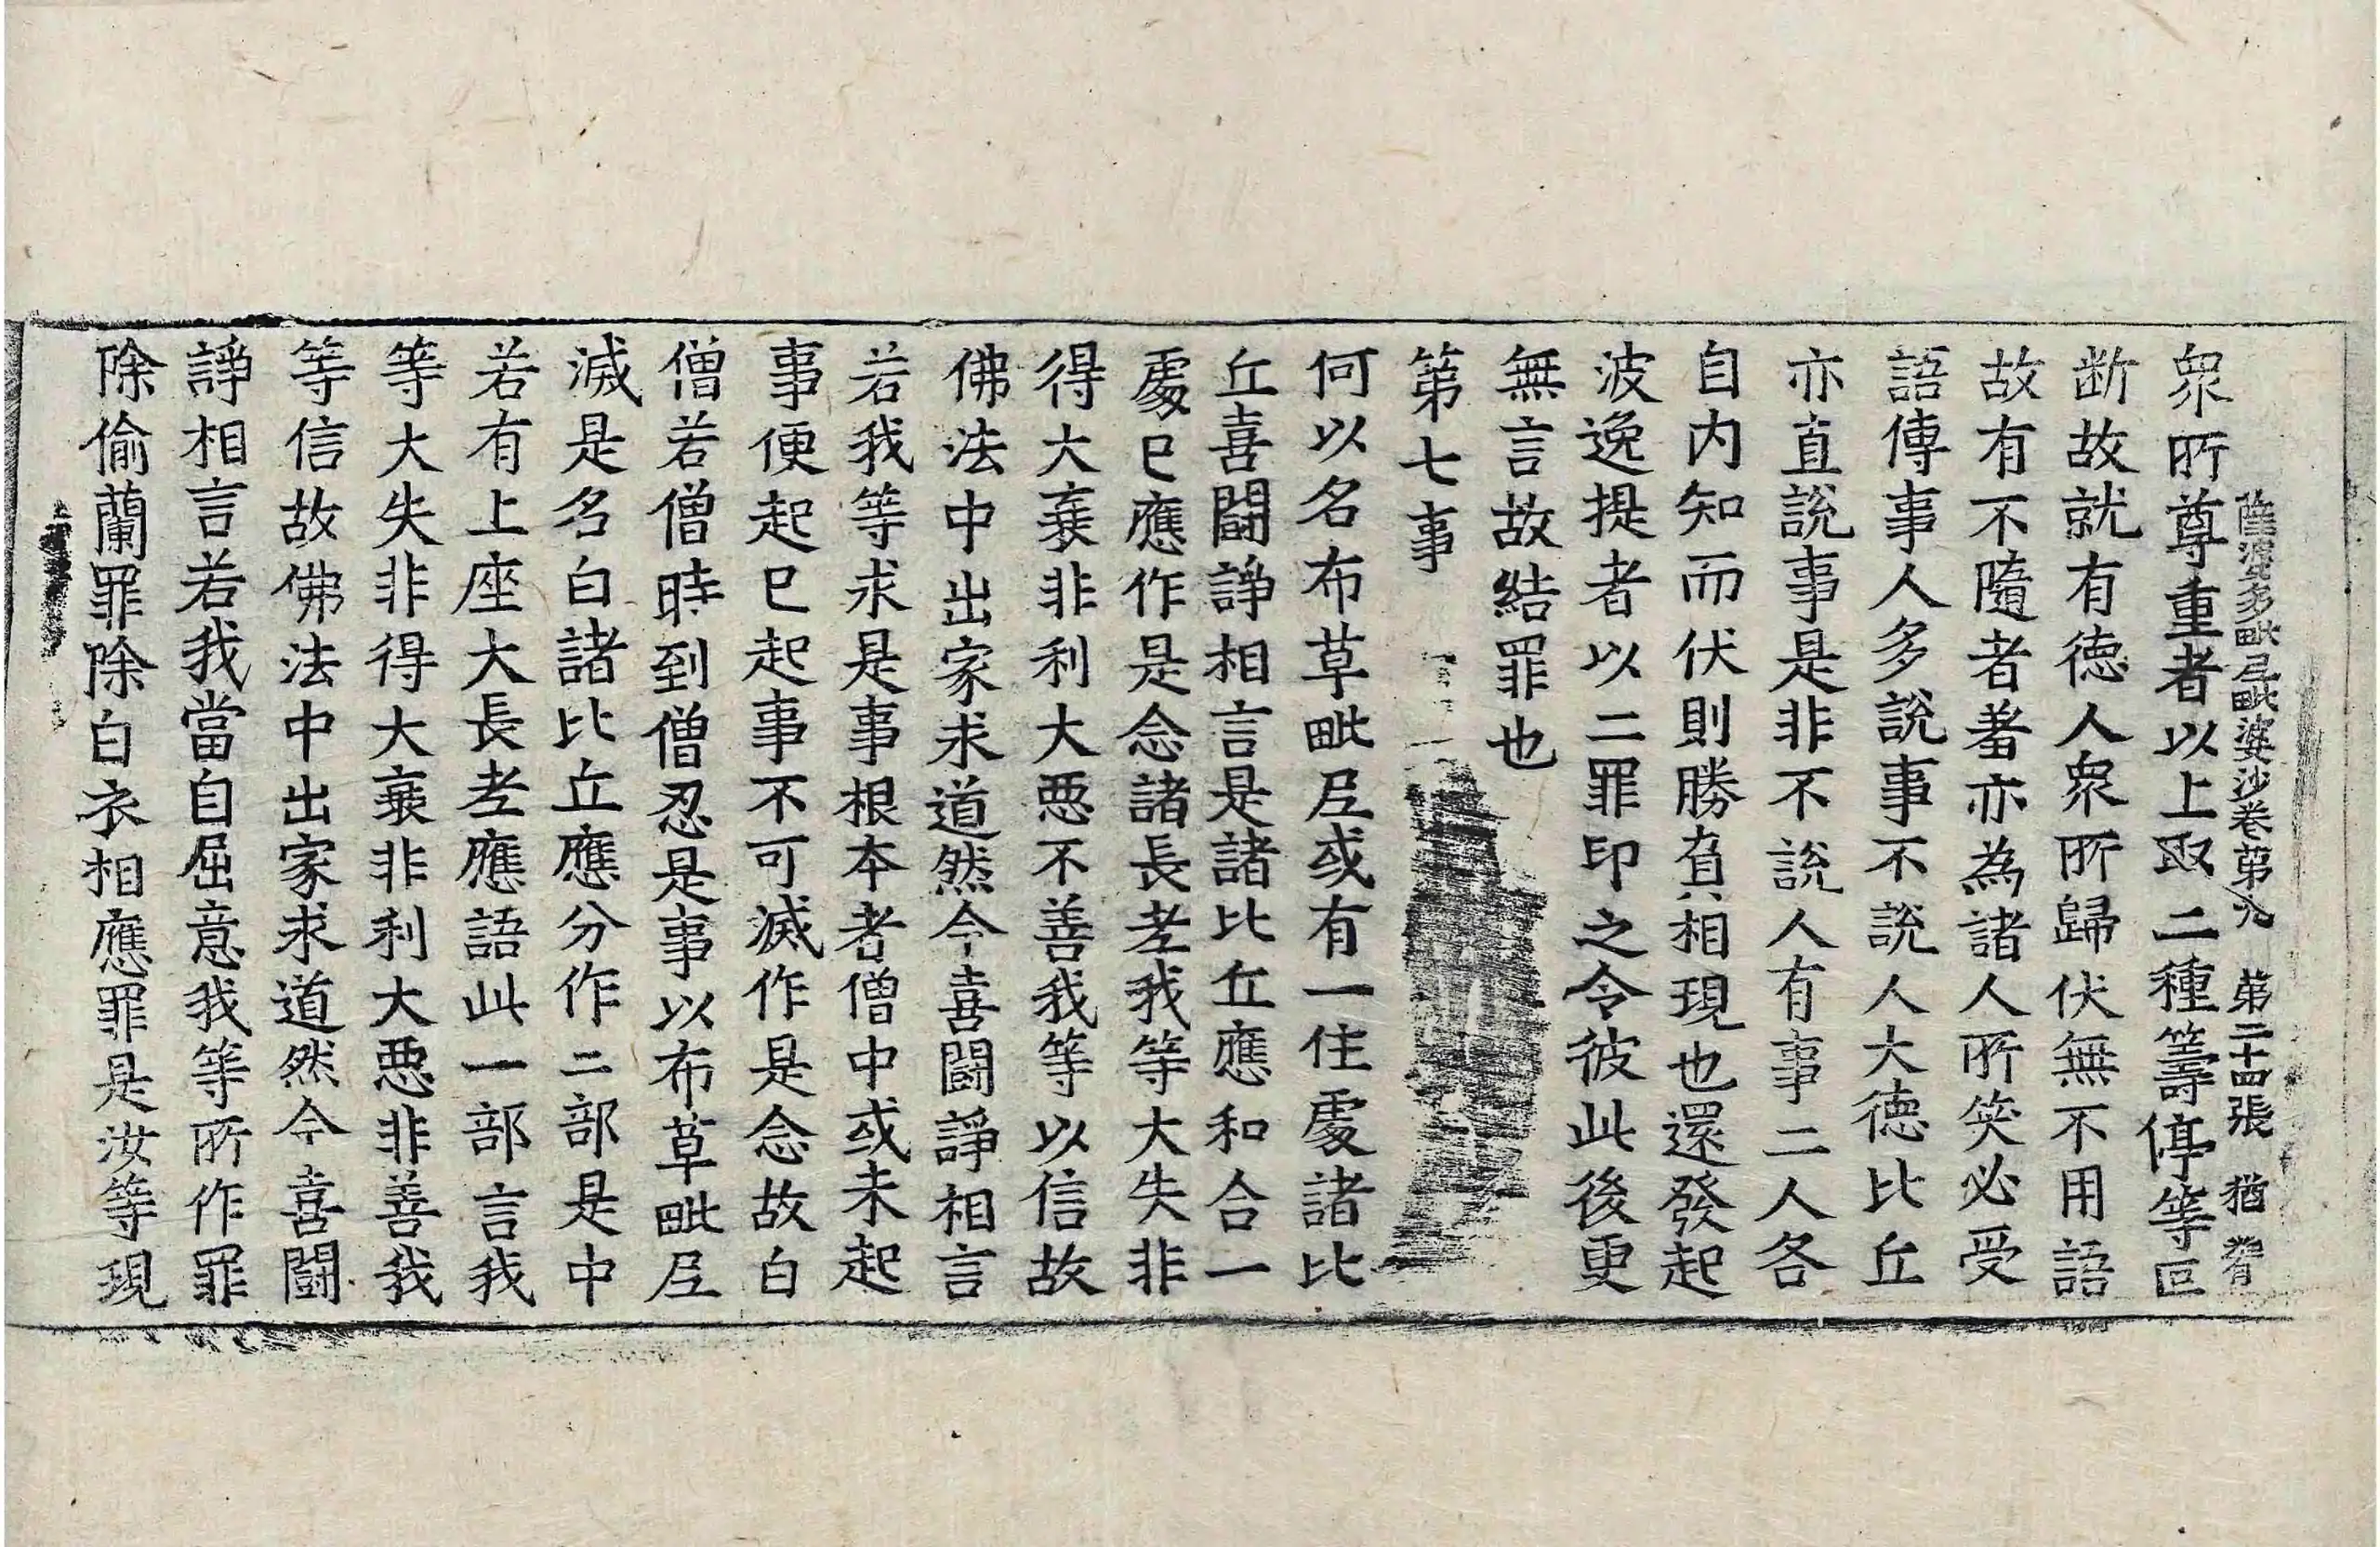 薩婆多毗尼毗婆沙卷第八　第二十四張　猶
衆所尊重者以上取二種籌停等叵
断故就有徳人衆所歸伏無不用語
故有不隨者羞亦為諸人所笑必受
語傳事人多說事不說人大徳比丘
亦直說事是非不說人有事二人各
自内知而伏則勝負相現也還發起
波逸提者以二罪印之令彼此後更
無言故結罪也
第七事
何以名布草毗尼或有一住處諸比
丘喜鬪諍相言是諸比丘應和合一
處已應作是念諸長老我等大失非
得大衰非利大惡不善我等以信故
佛法中出家求道然今喜鬪諍相言
若我等求是事根本者僧中或未起
事便起已起事不可滅作是念故白
僧若僧時到僧忍是事以布草毗尼
滅是名白諸比丘應分作二部是中
若有上座大長老應語此一部言我
等大失非得大衰非利大惡非善我
等信故佛法中出家求道然今喜鬪
諍相言若我當自屈意我等所作罪
除偷蘭罪除白衣相應罪是汝等現